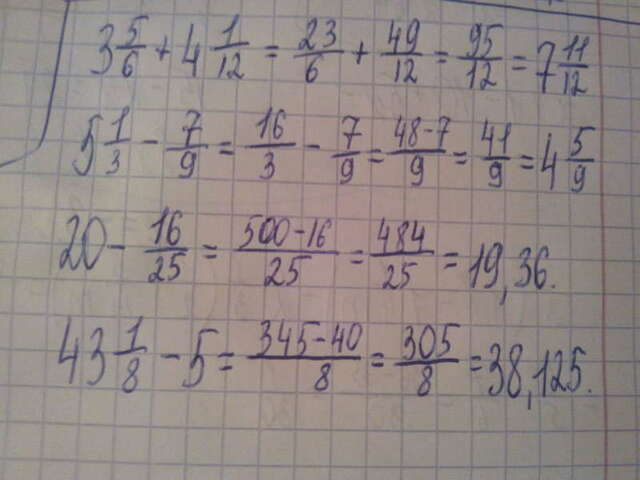 3 5/6 + 4 1/12 = 23/6 + 49/12 = 95/12 = 7 11/12
5 1/3 - 7/9 = 16/3 - 7/9 = 48-7/9 = 41/9 = 4 5/9
20 - 16/25 = 500-16/25 = 484/25 = 19,36.
43 1/8 - 5 = 345-40/8 = 305/8 = 38,125.